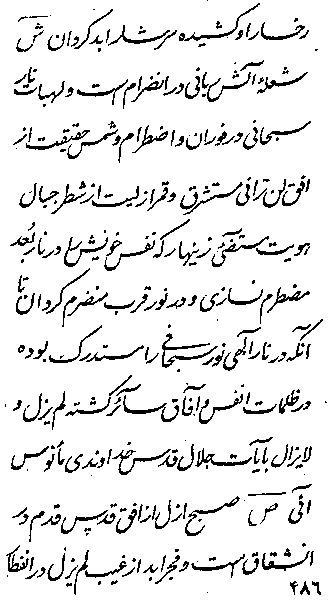 رخسار او کشیده سرشار ابد کردان شَ
شعلهٔ آتش ربانی در انضرام است و لهبات نار
سبحانی در فوران و اضطرام و شمس حقیقت از
افق لن ترانی مستشرق و قمر ازلیت از شطر جبال
هویت مستضیٔ زینهار که نفس خویش را در نار بُعد
مضطرم نسازی و در نور قرب منضرم کردان تا
آنکه در نار الهی نور سبحانی را مستدرک بوده
در ظلمات انفس و آفاق سائر کشته لم یزل و
لایزال بآیات جلال قدس خداوندی مأنوس
آئی ص صبح ازل از افق قدس قدم در
انشقاق است و فجر ابد از غیب لم یزل در انفطار
۴۸۶